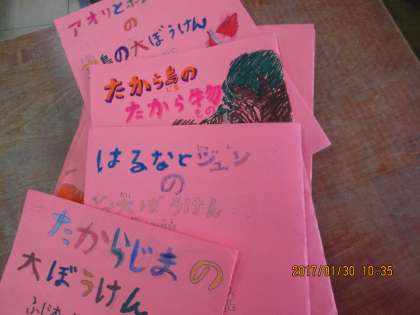 アオリと
の
島の大ぼうけん
たから島の
たから生物
はるなとジュン
の
大ぼうけん
たからじまの
大ぼうけん
2017/01/30 10:35